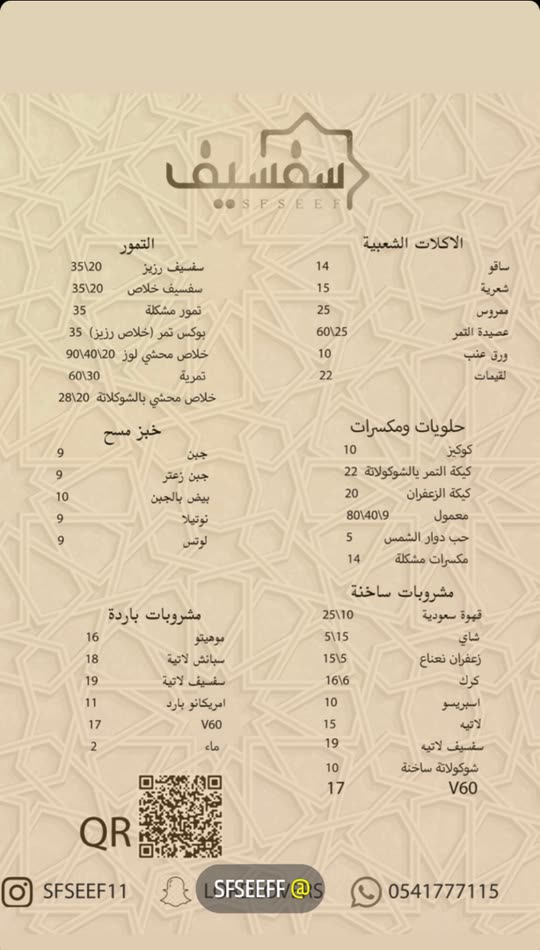 سفسيف
SFSEEF
الاكلات الشعبية
ساقو 14
شعرية 15
ممروس 25
عصيدة التمر 60\25
ورق عنب 10
لقيمات 22
حلويات ومكسرات
كوكيز 10
كيكة التمر يالشوكولاتة 22
كيكة الزعفران 20
معمول 80\40\9
حب دوار الشمس 5
مكسرات مشكلة 14
مشروبات ساخنة
قهوة سعودية 25\10
شاي 5\15
زعفران نعناع 15\5
كرك 16\6
اسبريسو 10
لاتيه 15
سفسيف لاتيه 19
شوكولاتة ساخنة 10
V60 17
التمور
سفسيف رزيز 35\20
سفسيف خلاص 35\20
تمور مشكلة 35
بوكس تمر (خلاص رزيز) 35
خلاص محشي لوز 90\40\20
تمرية 60\30
خلاص محشي بالشوكلاتة 28\20
خبز مسح
جبن 9
جبن زعتر 9
بيض بالجبن 10
نوتيلا 9
لوتس 9
مشروبات باردة
موهيتو 16
سبانش لاتية 18
سفسيف لاتية 19
امريكانو بارد 11
V60 17
ماء 2
QR
SFSEEF11
SFSEEFF @
0541777115